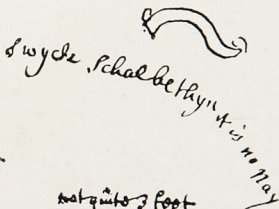 Swycke Schalbethyn it is no pay
not quite 3 foot